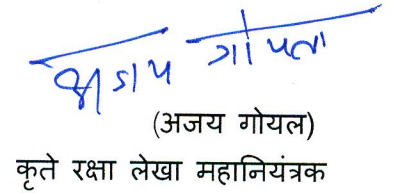 अजय गोयल
(अजय गोयल)
कृते रक्षा लेखा महानियंत्रक